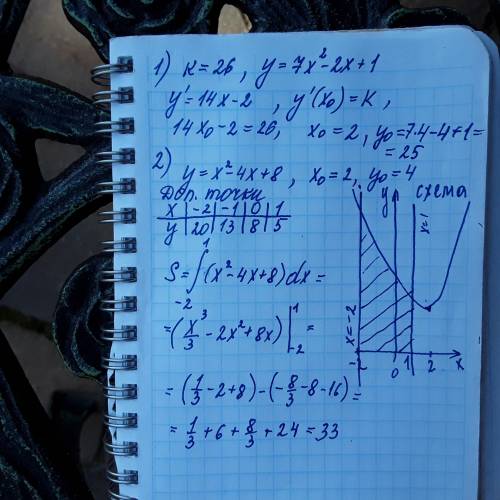 1) K=26, y=7x²-2x+1
y'=14x-2, y'(x₀)=K,
14x₀-2=26, x₀=2, y₀=7·4-4+1=
=25
2) y=x²-4x+8, x₀=2, y₀=4
Доп. точки
x|-2|-1|0|1
y|20|13|8|5
y схема
x=1
x=-2
-2 0 1 2 x
S=∫₋₂¹(x²-4x+8)dx=
=(x³/3-2x²+8x)|₋₂¹=
=(1/3-2+8)-(-8/3-8-16)=
=1/3+6+8/3+24=33